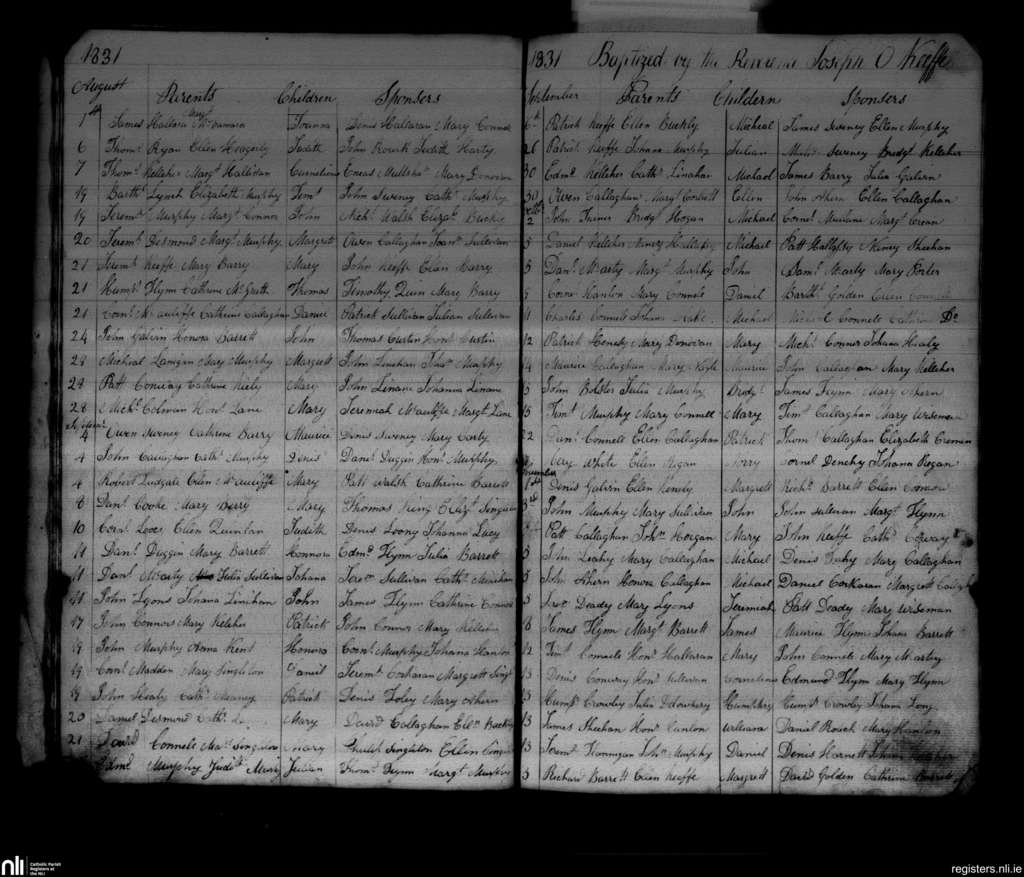 1831
August
Parents Children Sponsers
1st James Hallara Mary McNamara Joanna Denis Hallaran Mary Connor
6 Thoms Ryan Ellen Hogerly Judith John Rourk Judith Harty
7 Thoms Kelleher Margt Hallidan Cornelious Eneas Mary Donovan
19 Barthw Lynch Elizabeth Murphy Timt John Sweney Cathe Murphy
19 Jeremh Murphy Margt Connor John Nichs Walsh Elizah
20 Jeremh Desmond Margt Murphy Margrett Owen Callaghan Joana Sullivan
21 Jeremh Keeffe Mary Barry Mary John Keeffe Ellen Barry
21 Humps Flynn Cathrine McGrath Thomas Timothy Quin Mary Barry
21 Corns McAuliffe Cathrine Callaghan Daniel Patrick Sullivan Julian Sullivan
24 John Galvin Honora Barrett John Thomas Curtin Honr Curtin
28 Micheal Mary Murphy Margrett John Linehan Johan Murphy
28 Patt Conway Cathrine Kiely Mary John Linane Johanna Linane
28 Michs Colman Honr Lane Mary Jeremiah McAuliffe Margt Lane
4 Owen Sweney Cathrine Barry Maurice Denis Sweney Mary Carty
4 John Callaghan Cathe Murphy Denis Danel Duggin Honr Murphy
4 Robert Ludgate Ellen McAuliffe Mary Patt Walsh Cathrine Barrett
8 Danl Cooke Mary Berry Mary Thomas King Elizt
10 Corns Ellen Quinlan Judith Denis Loony Johanna Lucy
11 Danl Duggin Mary Barrett Honnora Edmd Flynn Julia Barrett
11 Danl McCarty Julia Sullivan Johana Sullivan Cathe
11 John Lyons Johana Linihan John James Flynn Cathrine Connor
17 John Connors Mary Keleher Patrick John Connor Mary Kelleher
19 John Murphy Anna Kent Honora Corns Murphy Johana Hanlon
19 Corns Madden Mary Singleton Daniel Jeremh Corkeran Margrett
19 John Healy Cathe Meaney Patrick Denis Foley Mary Ahern
20 Daniel Desmond Cathe Mary David Callaghan Ellen
21 David Connels Mary Singleton Mary Philip Singleton Ellen
Edmd Murphy Judith Julian Thoms Flynn Margt Murphy
1831 Baptized by the Reverend Joseph O Keeffe
September Parents Childern Sponsers
Patrick Keeffe Ellen Buckly Micheal James Sweney Ellen Murphy
26 Patrick Keeffe Johana Murphy Julian Sweney Bridgt Kelleher
30 Edmd Kelleher Cathe Linahan Michael James Barry Julia Galvin
30 Owen Callaghan Mary Corbett Ellen John Ahern Ellen Callaghan
2 John Bridgt Hogan Michael Cornel Margt Crean
5 Daniel Keleher Nancy Michael Patt Nancy Sheehan
5 Danl McCarty Margt Murphy John Saml McCarty Mary Porter
Corns Hanlon Mary Connels Daniel Barthw Golden Ellen
11 Charles Connels Johana Michael Michael Connels Cathrine Do
12 Patrick Henesy Mary Donovan Mary Michl Connor Johana Healy
Maurice Callaghan Mary Maurice John Callaghan Mary Kelleher
15 John Bolster Julia Murphy Bridgt James Flynn Mary Ahern
15 Timt Murphy Mary Connell Mary Timt Callaghan Mary Wiseman
22 Danl Connell Ellen Callaghan Patrick Thoms Callaghan Elizabeth Cremen
White Ellen Regan Cornel Denehy Johana Regan
1st Denis Galvin Ellen Kenely Margrett Richd Barrett Ellen Connor
3rd John Murphy Mary Sulivan John John Sulivan Margt Flynn
Patt Callaghan Johan Horgan Mary John Keeffe Cathe Conway
5 John Leahy Mary Callaghan Michael Denis Tuhy Mary Callaghan
5 John Ahern Honora Callaghan Michael Daniel Corkaran Margrett
5 Deady Mary Lyons Jeremiah Patt Deady Mary Wiseman
8 James Flynn Margt Barrett James Maurice Flynn Johana Barrett
12 Timt Connels Honr Hallaran Mary John Connels Mary McCarty
13 Denis Conway Honr Sullivan Cornelious Edmund Flynn Mary Flynn
13 Humps Crowley Julia Humphry Humps Crowley Johana Long
13 James Sheehan Honr Hanlon William Daniel Roach Mary Hanlon
13 Jeremh Flannigan Johan Murphy Daniel Denis Harnett Johana
Richard Barrett Ellen Keeffe Margrett David Golden Cathrine Barrett
nli
Catholic Parish
Registers at
the NLI
registers.nli.ie